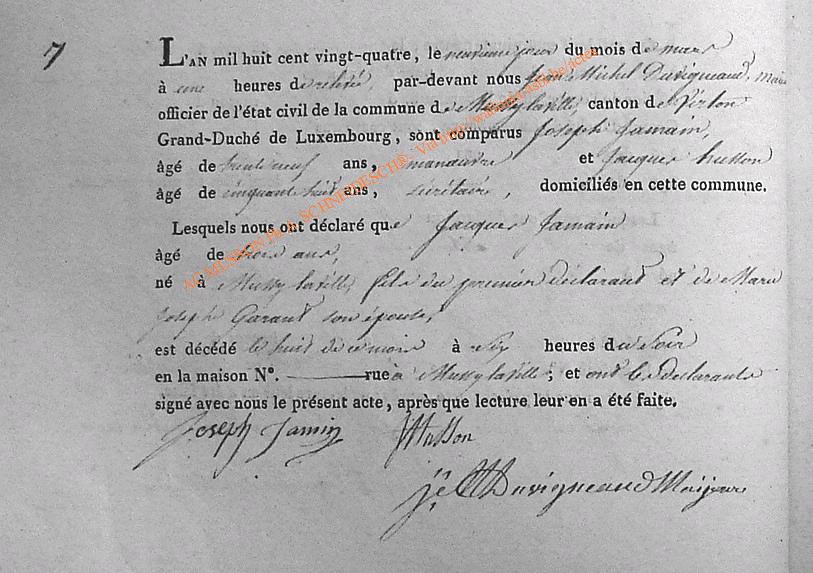 7
L'AN mil huit cent vingt-quatre, le neuvieme jour du mois de mars
à une heures de relevée, par-devant nous Jean Michel Duvigneaud, maire
officier de l'état civil de la commune de Mussy laville, canton de Virton
Grand-Duché de Luxembourg, sont comparus Joseph Jamain,
âgé de trente neuf ans, manœuvre et Jacques husson
âgé de cinquante huit ans, secrétaire, domiciliés en cette commune.
Lesquels nous ont déclaré que Jacques Jamain
âgé de trois ans,
né à Mussy laville, fils du premier déclarant et de Marie
Joseph Garant son épouse,
est décédé le huit de ce mois à six heures du soir
en la maison N°. rue à Mussy laville; et ont les déclarants
signé avec nous le présent acte, après que lecture leur en a été faite.
Joseph Jamin Husson
Duvigneaud
AG MUSSON Ph.L. SCHNEIDESCH®- Via http://